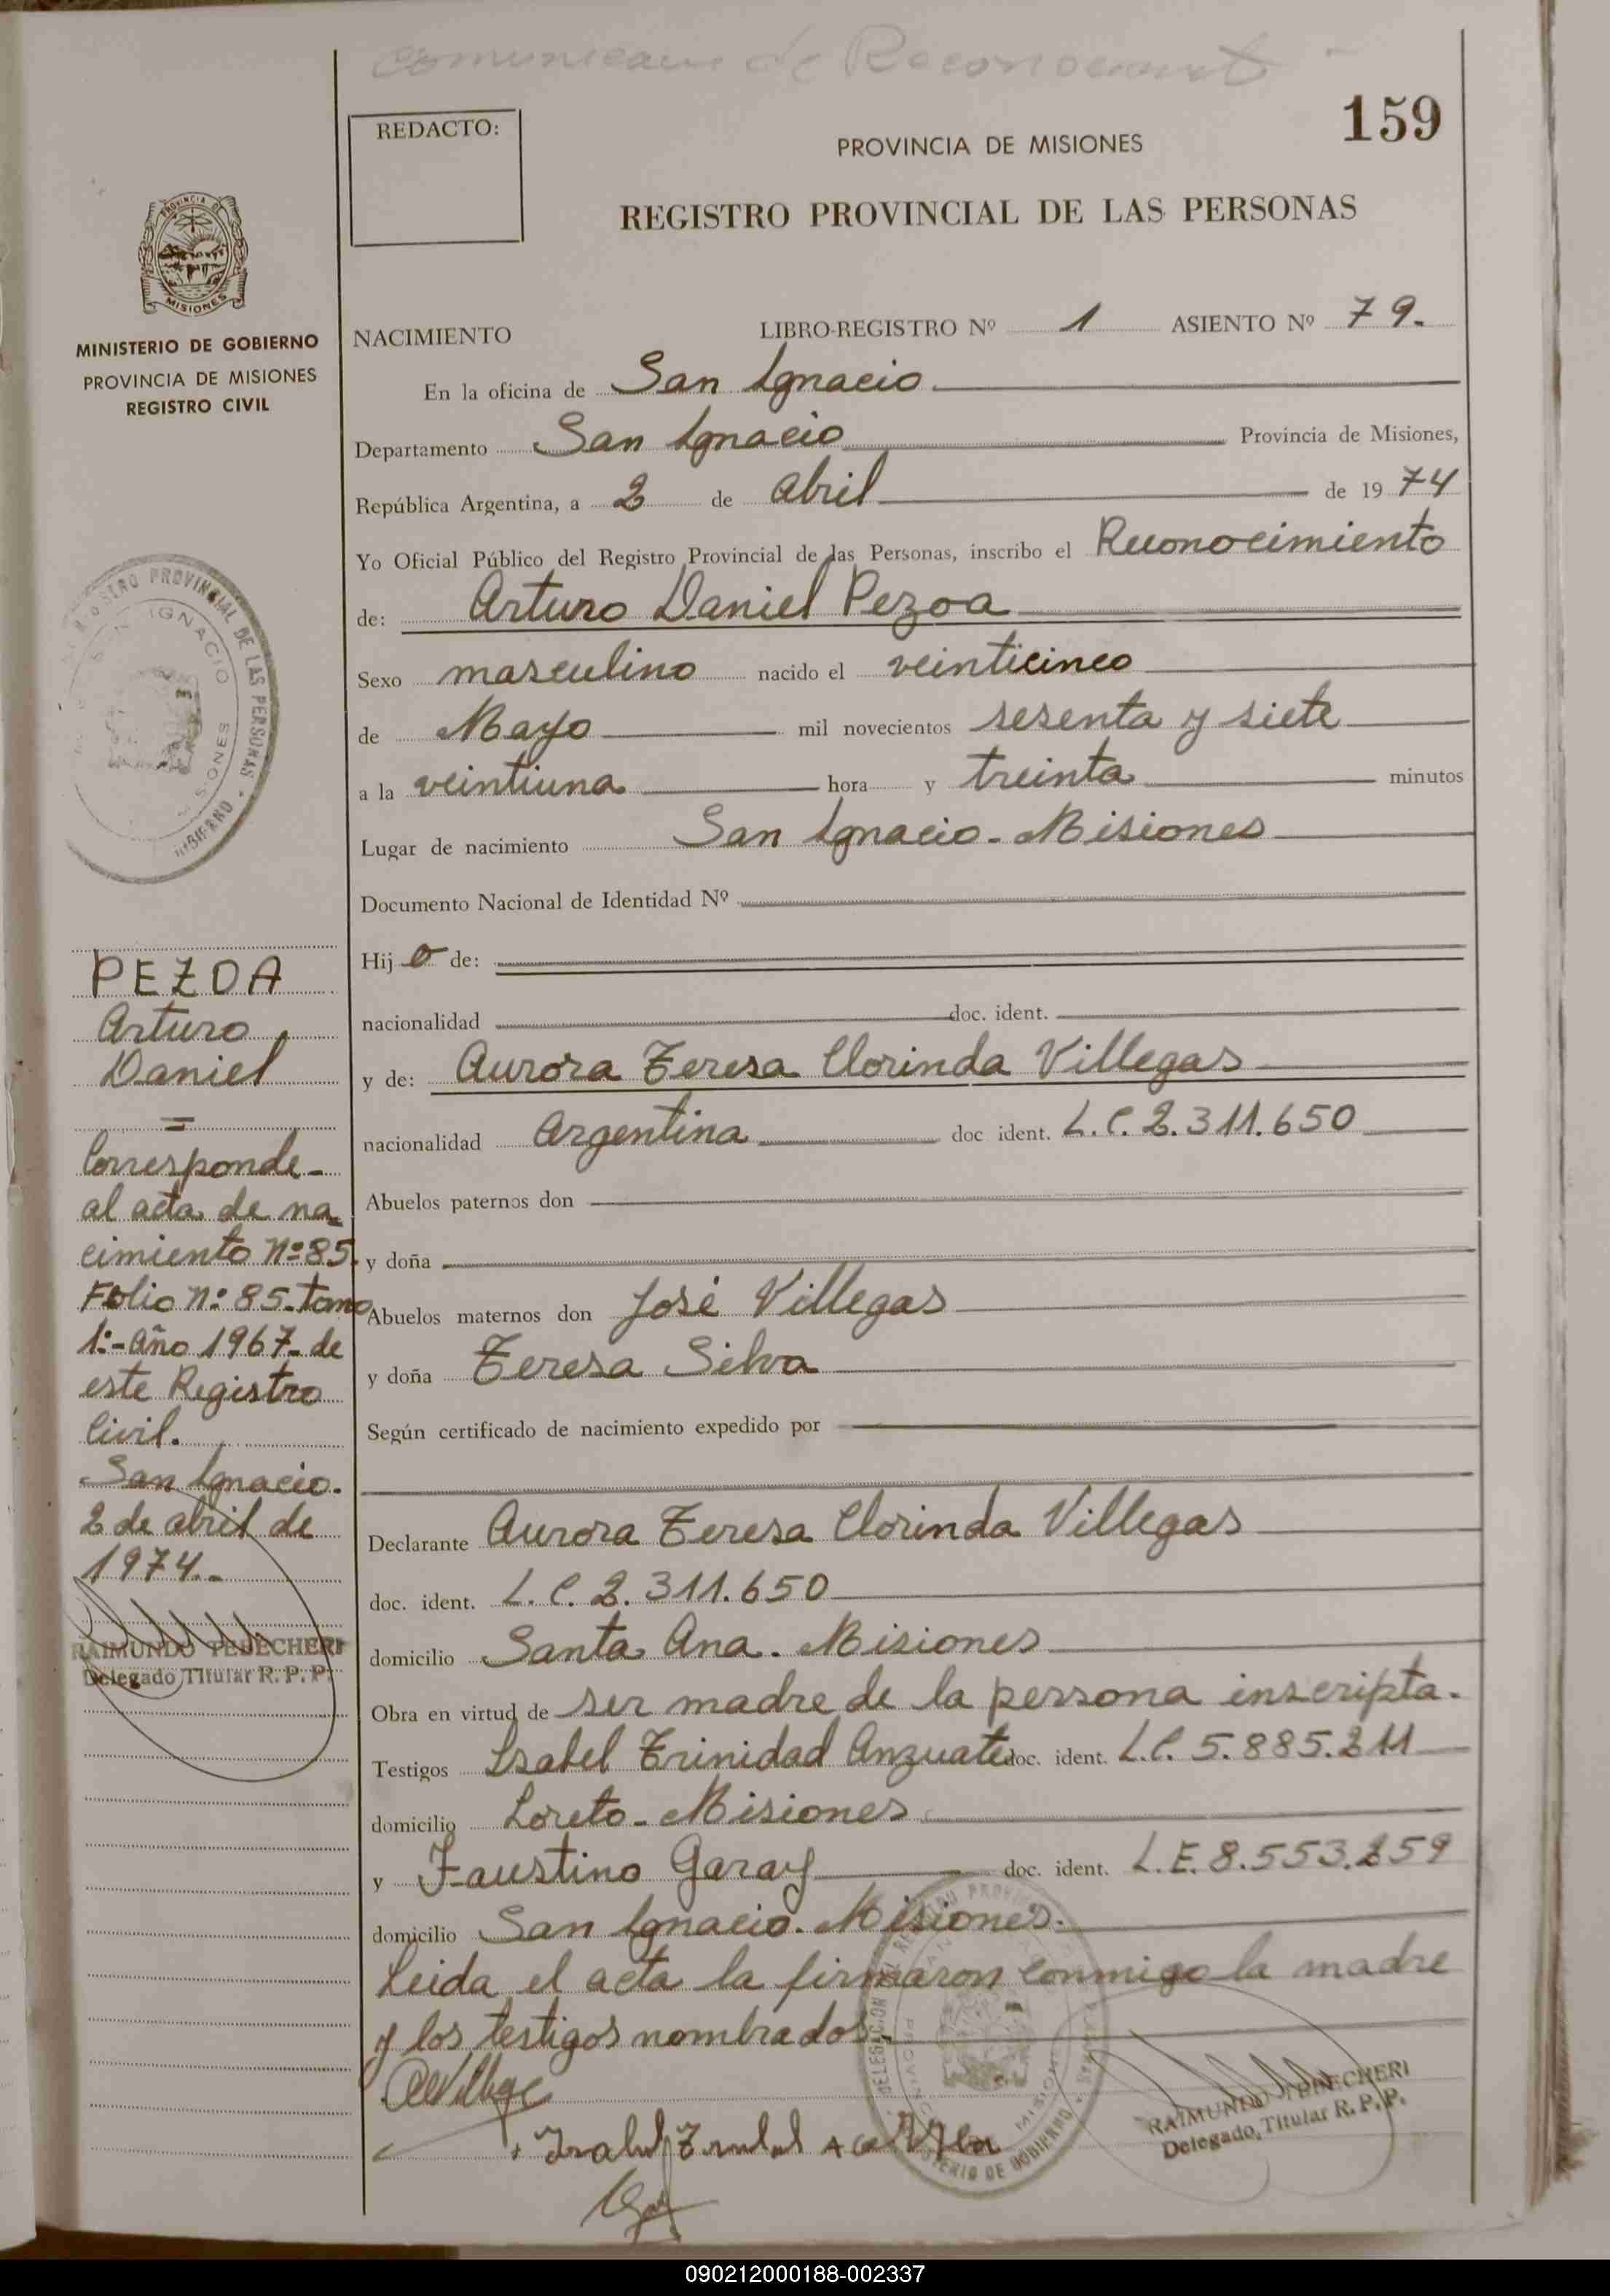 comunicacion de Reconocimiento
159
REDACTO:
PROVINCIA DE MISIONES
REGISTRO PROVINCIAL DE LAS PERSONAS
PROVINCIA DE
MISIONES
MINISTERIO DE GOBIERNO
PROVINCIA DE MISIONES
REGISTRO CIVIL
NACIMIENTO LIBRO-REGISTRO Nº 1 ASIENTO Nº 79.
En la oficina de San Ignacio
Departamento San Ignacio Provincia de Misiones,
República Argentina, a 2 de abril de 1974
Yo Oficial Público del Registro Provincial de las Personas, inscribo el Reconocimiento
de: Arturo Daniel Pezoa
Sexo masculino nacido el veinticinco
de Mayo mil novecientos sesenta y siete
a la veintiuna hora y treinta minutos
Lugar de nacimiento San Ignacio - Misiones
Documento Nacional de Identidad Nº
Hij o de:
nacionalidad doc. ident.
y de: Aurora Teresa Clorinda Villegas
nacionalidad Argentina doc ident. L.C. 2.311.650
Abuelos paternos don
y doña
Abuelos maternos don José Villegas
y doña Teresa Silva
Según certificado de nacimiento expedido por
Declarante Aurora Teresa Clorinda Villegas
doc. ident. L.C. 2.311.650
domicilio Santa Ana. Misiones
Obra en virtud de ser madre de la persona inscripta.
Testigos Isabel Trinidad Anzuate doc. ident. L.C. 5.885.211
domicilio Loreto - Misiones
y Faustino Garay doc. ident. L.E. 8.553.259
domicilio San Ignacio. Misiones.
Leida el acta la firmaron conmigo la madre
y los testigos nombrados.-
RAIMUNDO TEDECHERI
Delegado Titular R. P. P.
PEZOA
Arturo
Daniel
=
Corresponde-
al acta de na-
cimiento Nº 85.
Folio Nº 85. Tomo
1º-Año 1967- de
este Registro
Civil.
San Ignacio.
2 de abril de
1974.-
RAIMUNDO TEDECHERI
Delegado Titular R. P. P.
REGISTRO PROVINCIAL DE LAS PERSONAS
IGNACIO
090212000188-002337